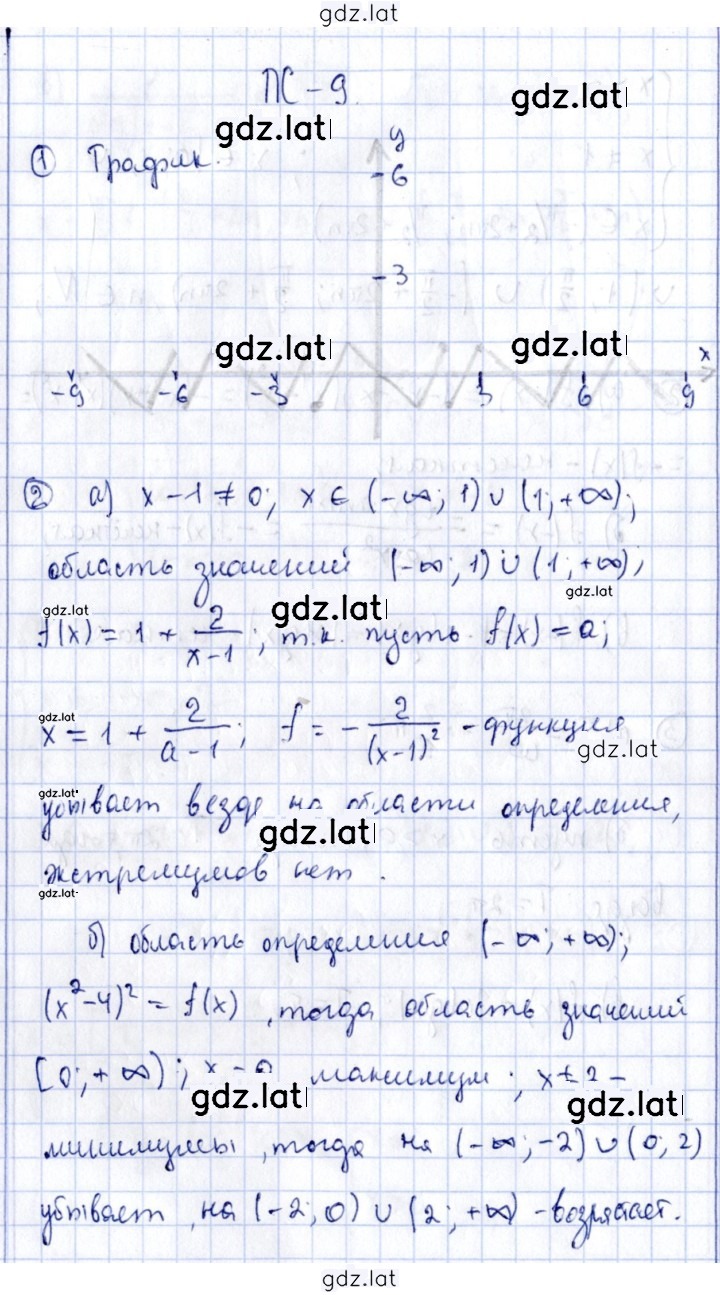 gdz.lat
ПС - 9.
gdz.lat
gdz.lat
① График.
y
6
3
gdz.lat
gdz.lat
x
-9 -6 -3 3 6 9
② а) x - 1 ≠ 0; x ∈ (-∞; 1) ∪ (1; +∞);
область значений (-∞; 1) ∪ (1; +∞);
gdz.lat
gdz.lat
gdz.lat
f(x) = 1 + 2/(x-1); т.к. пусть f(x) = a;
gdz.lat
x = 1 + 2/(a-1); f = - 2/(x-1)² - функция
gdz.lat
gdz.lat
убывает везде на области определения,
gdz.lat
экстремумов нет.
gdz.lat
б) область определения (-∞; +∞);
(x²-4)² = f(x), тогда область значений
[0; +∞); x = 0 максимум; x ± 2 -
gdz.lat
gdz.lat
минимумы, тогда на (-∞; -2) ∪ (0; 2)
убывает, на (-2; 0) ∪ (2; +∞) - возрастает.
gdz.lat